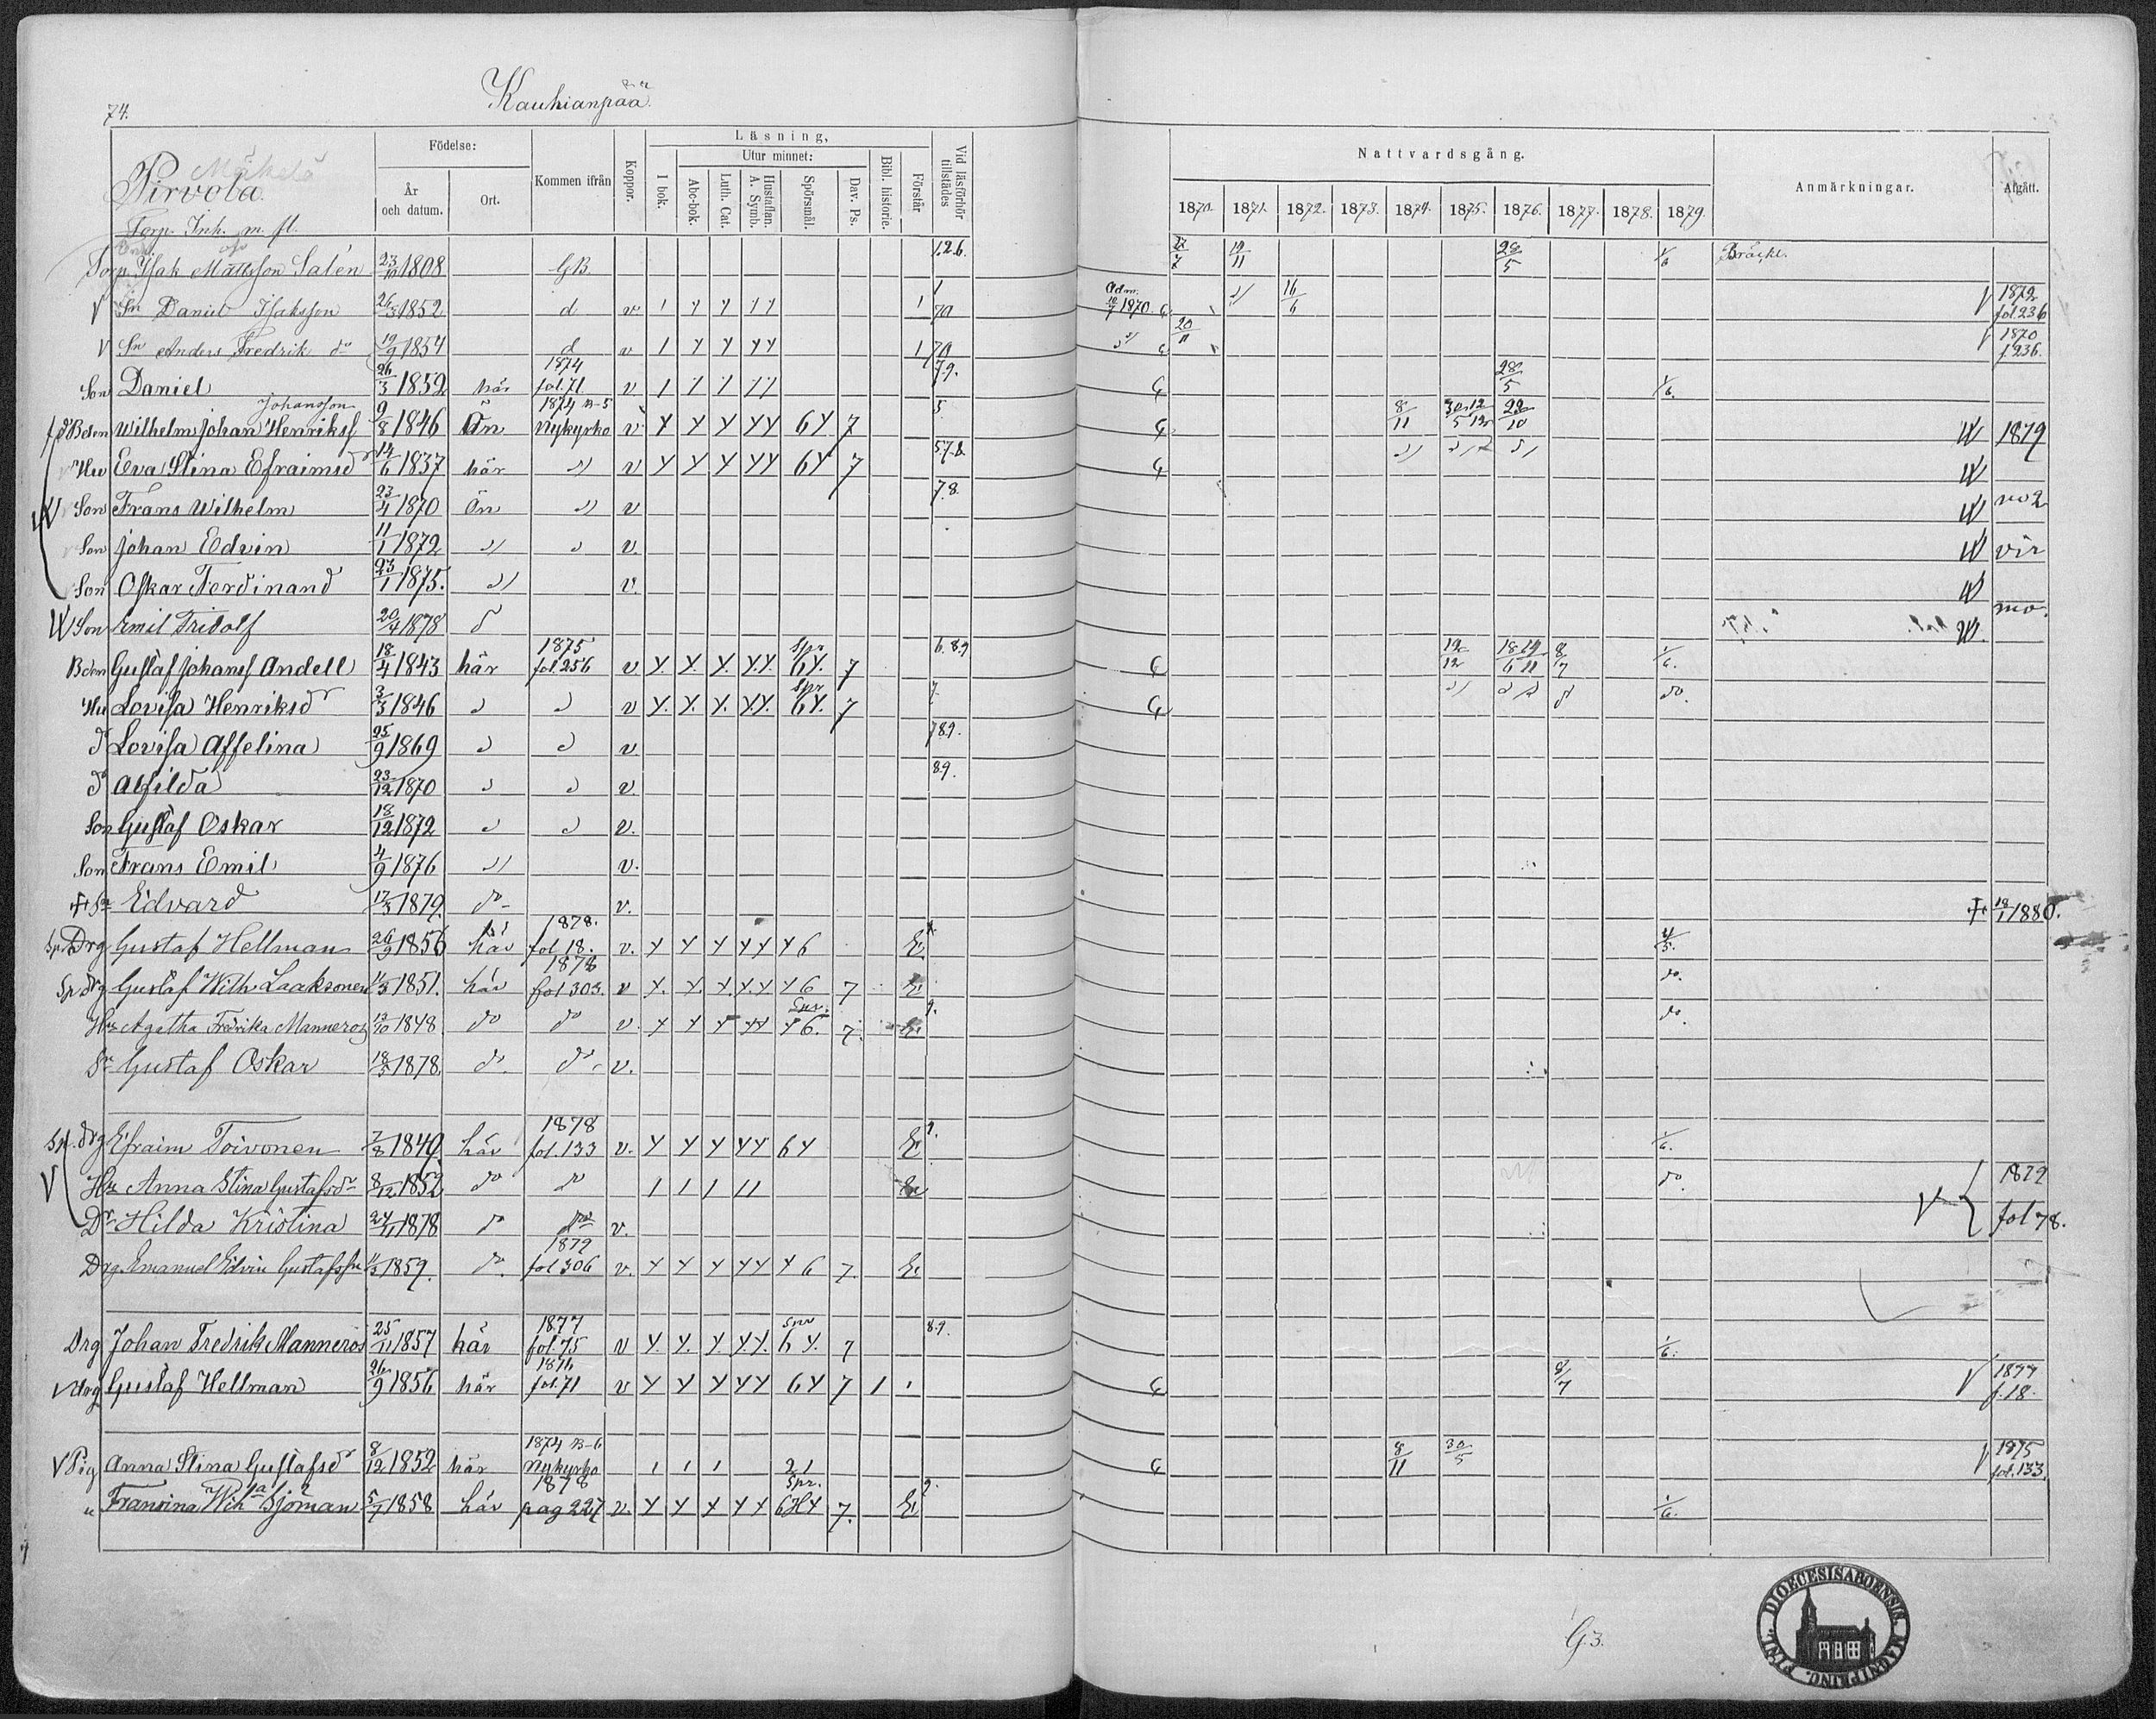 74.
Kauhianpää.
Mäkelä
Pirvola.
Torp. Inh. m. fl.
Födelse:
År och datum.
Ort.
Kommen ifrån
Koppor.
Läsning,
I bok.
Utur minnet:
Abc-bok.
Luth. Cat.
Hustaflan. A. Symb.
Spörsmål.
Dav. Ps.
Bibl. historie.
Förstår
Vid läsförhör tillstädes
Nattvardsgång.
1870. 1871. 1872. 1873. 1874. 1875. 1876. 1877. 1878. 1879.
Anmärkningar.
Afgått.
Torp. Isak Mattsson Salen 23/10 1808 GB. 1.2.6. 19/11 28/5 1/6 Bräckl.
V Sn Daniel Isaksson 26/3 1852 d v 1 Y Y Y Y 1 1/70 Adm. 10/7 1870 16/6 V 1872 fol. 236
V Sn Anders Fredrik do 19/9 1854 d v 1 Y Y Y Y 1 70 20/11 V 1870 f. 236.
Son Daniel 26/3 1852 här 1874 fol. 71 v 1 1 1 1 1 7.9. 28/5 1/6.
Bdm Wilhelm Johan Henrikss Johansson 9/8 1846 Ön 1874 B-5 Nykyrko v Y Y Y Y Y 6Y 7 5 8/11 30/5 12/12 29/10 1879
Hu Eva Stina Efraimsdr 14/6 1837 här v Y Y Y Y Y 6Y 7 5.7.8.
Son Frans Wilhelm 23/4 1870 Ön v 7.8. no 2
Son Johan Edvin 11/1 1872 v. vir
Son Oskar Ferdinand 23/1 1875. v.
Son Emil Fridolf 20/4 1878 d mo.
Bdm Gustaf Johanss Andell 18/4 1843 här 1875 fol. 256 v Y. Y. Y. Y.Y. Spr 6Y. 7 6.8.9 12/12 18/6 19/11 8/7 1/6.
Hu Lovisa Henriksdr 3/3 1846 v Y. Y. Y. Y.Y. Spr 6Y. 7 7. do.
dr Lovisa Affelina 25/9 1869 v 789.
dr Alfilda 23/12 1870 v. 89.
Son Gustaf Oskar 18/12 1872 v.
Son Frans Emil 4/9 1876 v.
Sn Edvard 17/3 1879. do v. 18/1 1880.
Sp. Drg Gustaf Hellman 26/9 1856 här 1878. fol 18. v. Y Y Y Y Y Y 6 4/5.
Sp drg Gustaf Wilh Laaksonen 1/3 1851. här 1878 fol 303. v Y. Y. Y. Y. Y. Y6 7 do.
Hu Agatha Fredrika Manneros 12/10 1848 do do v. Y Y Y Y Y Spr. Y6. 7. 9. do.
Sn Gustaf Oskar 18/3 1878. do. do. v.
Sp. drg Efraim Toivonen 7/8 1849. här 1878 fol. 133 v. Y Y Y Y Y 6Y 9. 1/6.
V Hu Anna Stina Gustafsdr 8/12 1852 do do 1 1 1 1 1 do. 1879
Dr Hilda Kristina 24/11 1878 do do v. V fol 78.
Drg Emanuel Edvin Gustafsson 1859. do. 1879 fol 306 v. Y Y Y Y Y Y 6 7.
Drg Johan Fredrik Manneros 25/11 1857 här 1877 fol. 75 v Y. Y. Y. Y.Y. Spr 6 Y. 7 8.9. 1/6.
V drg Gustaf Hellman 26/9 1856 här 1876 fol. 71 v Y Y Y Y Y 6Y 7 1 1 8/7 V 1877 f. 18.
V Pig Anna Stina Gustafsdr 8/12 1852 här 1874 B-6 Nykyrko 1 1 1 2 1 8/11 30/5 V 1875 fol. 133.
" Fransina Wilhla Sjöman 5/7 1858 här 1878 pag 227 v. Y Y Y Y Y Spr. 7. 9. 1/6.
G.3.
DIOECESIS ABOENSIS MAGNI PRINC. FINL.